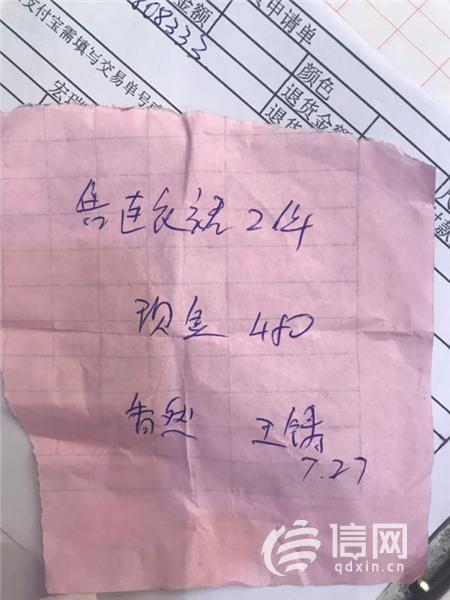 08333
金额
申请单
支付宝需填写交易单号
颜色
退货金额
宏瑞
退货
款
售连衣裙2件
现金 480
香然 王锦
7.27
信网
qdxin.cn